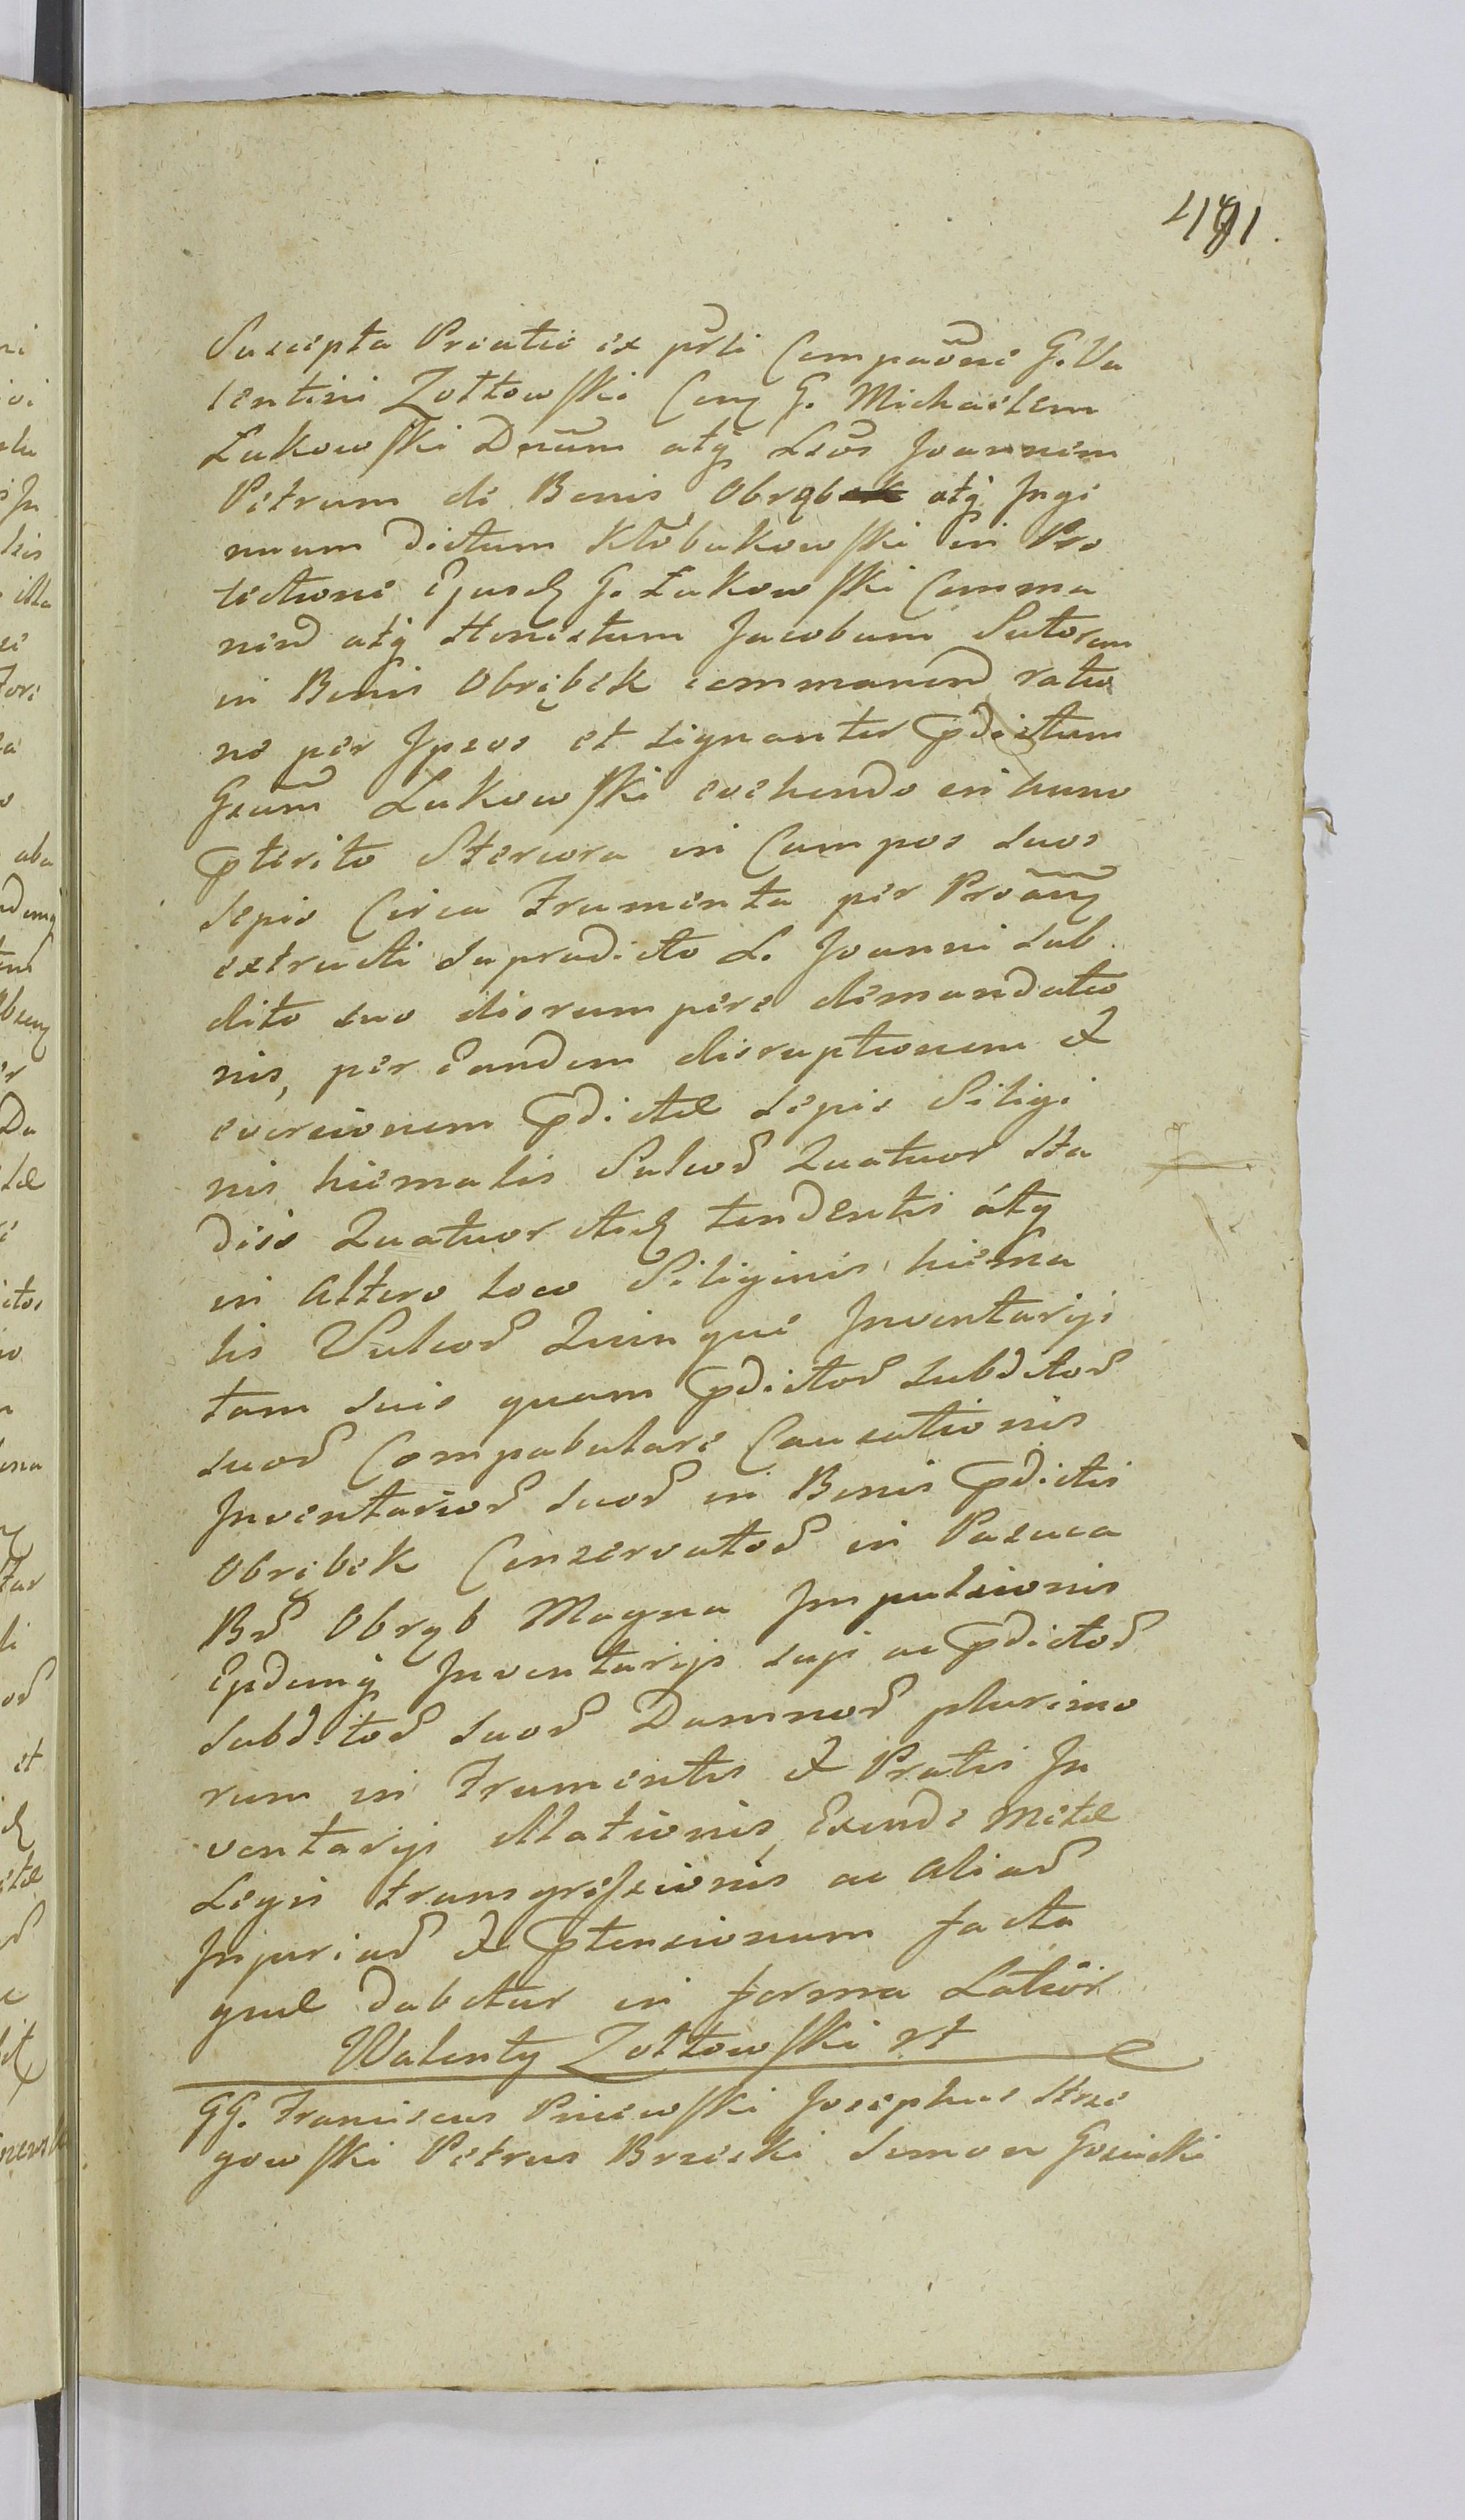 491.
Suscepta Protatio ex prsli Compaone G. Va
lentini Zołtowski Conq G. Michaelem
Łukowski Dnum atq Lsos Joannem
Petrum de Bonis Obrąbek atq Inge
nuum dictum Kłobukowski in Pro
tectione Ejusd G. Łukowski Comma
nend atq Honestum Jacobum Sutorem
in Bonis Obrębek commanend ratio
ne per Ipsos et signanter pdictum
Gsum Łukowski evehendo in anno
pterito Stercora in Campos suos
sepis Circa Frumenta per Proanq
extructi supradicto L. Joanni sub
dito suo disrumpere demandatio
nis, per Eandem disruptionem &
eversionem pdictæ sepis Siligi
nis hiemalis Sulcor Quatuor Sta
diis Quatuor tendentis átq
in Altero loco Siliginis hiema
lis Sulcor Quinque Inventarys
tam suis quam pdictor subditor
suor Compabulare Causationis
Inventarior suor in Bonis pdictis
Obrębek Conservator in Pascua
Br Obręb Magna Impulsionis
Ejsdemq Inventarijs suji ac pdictor
subditor suor Damnor plurimo
rum in Frumentis & Pratis In
ventarijs Illationis, Exinde Metæ
Legis transgressionis ac aliar
Injuriar & ptensionum facta
quæ dabitur in forma Latior
Walenty Zołtowski rt
GG. Franciscus Pniewski Josephus Strze
gowski Petrus Brzeski Simon Gosicki